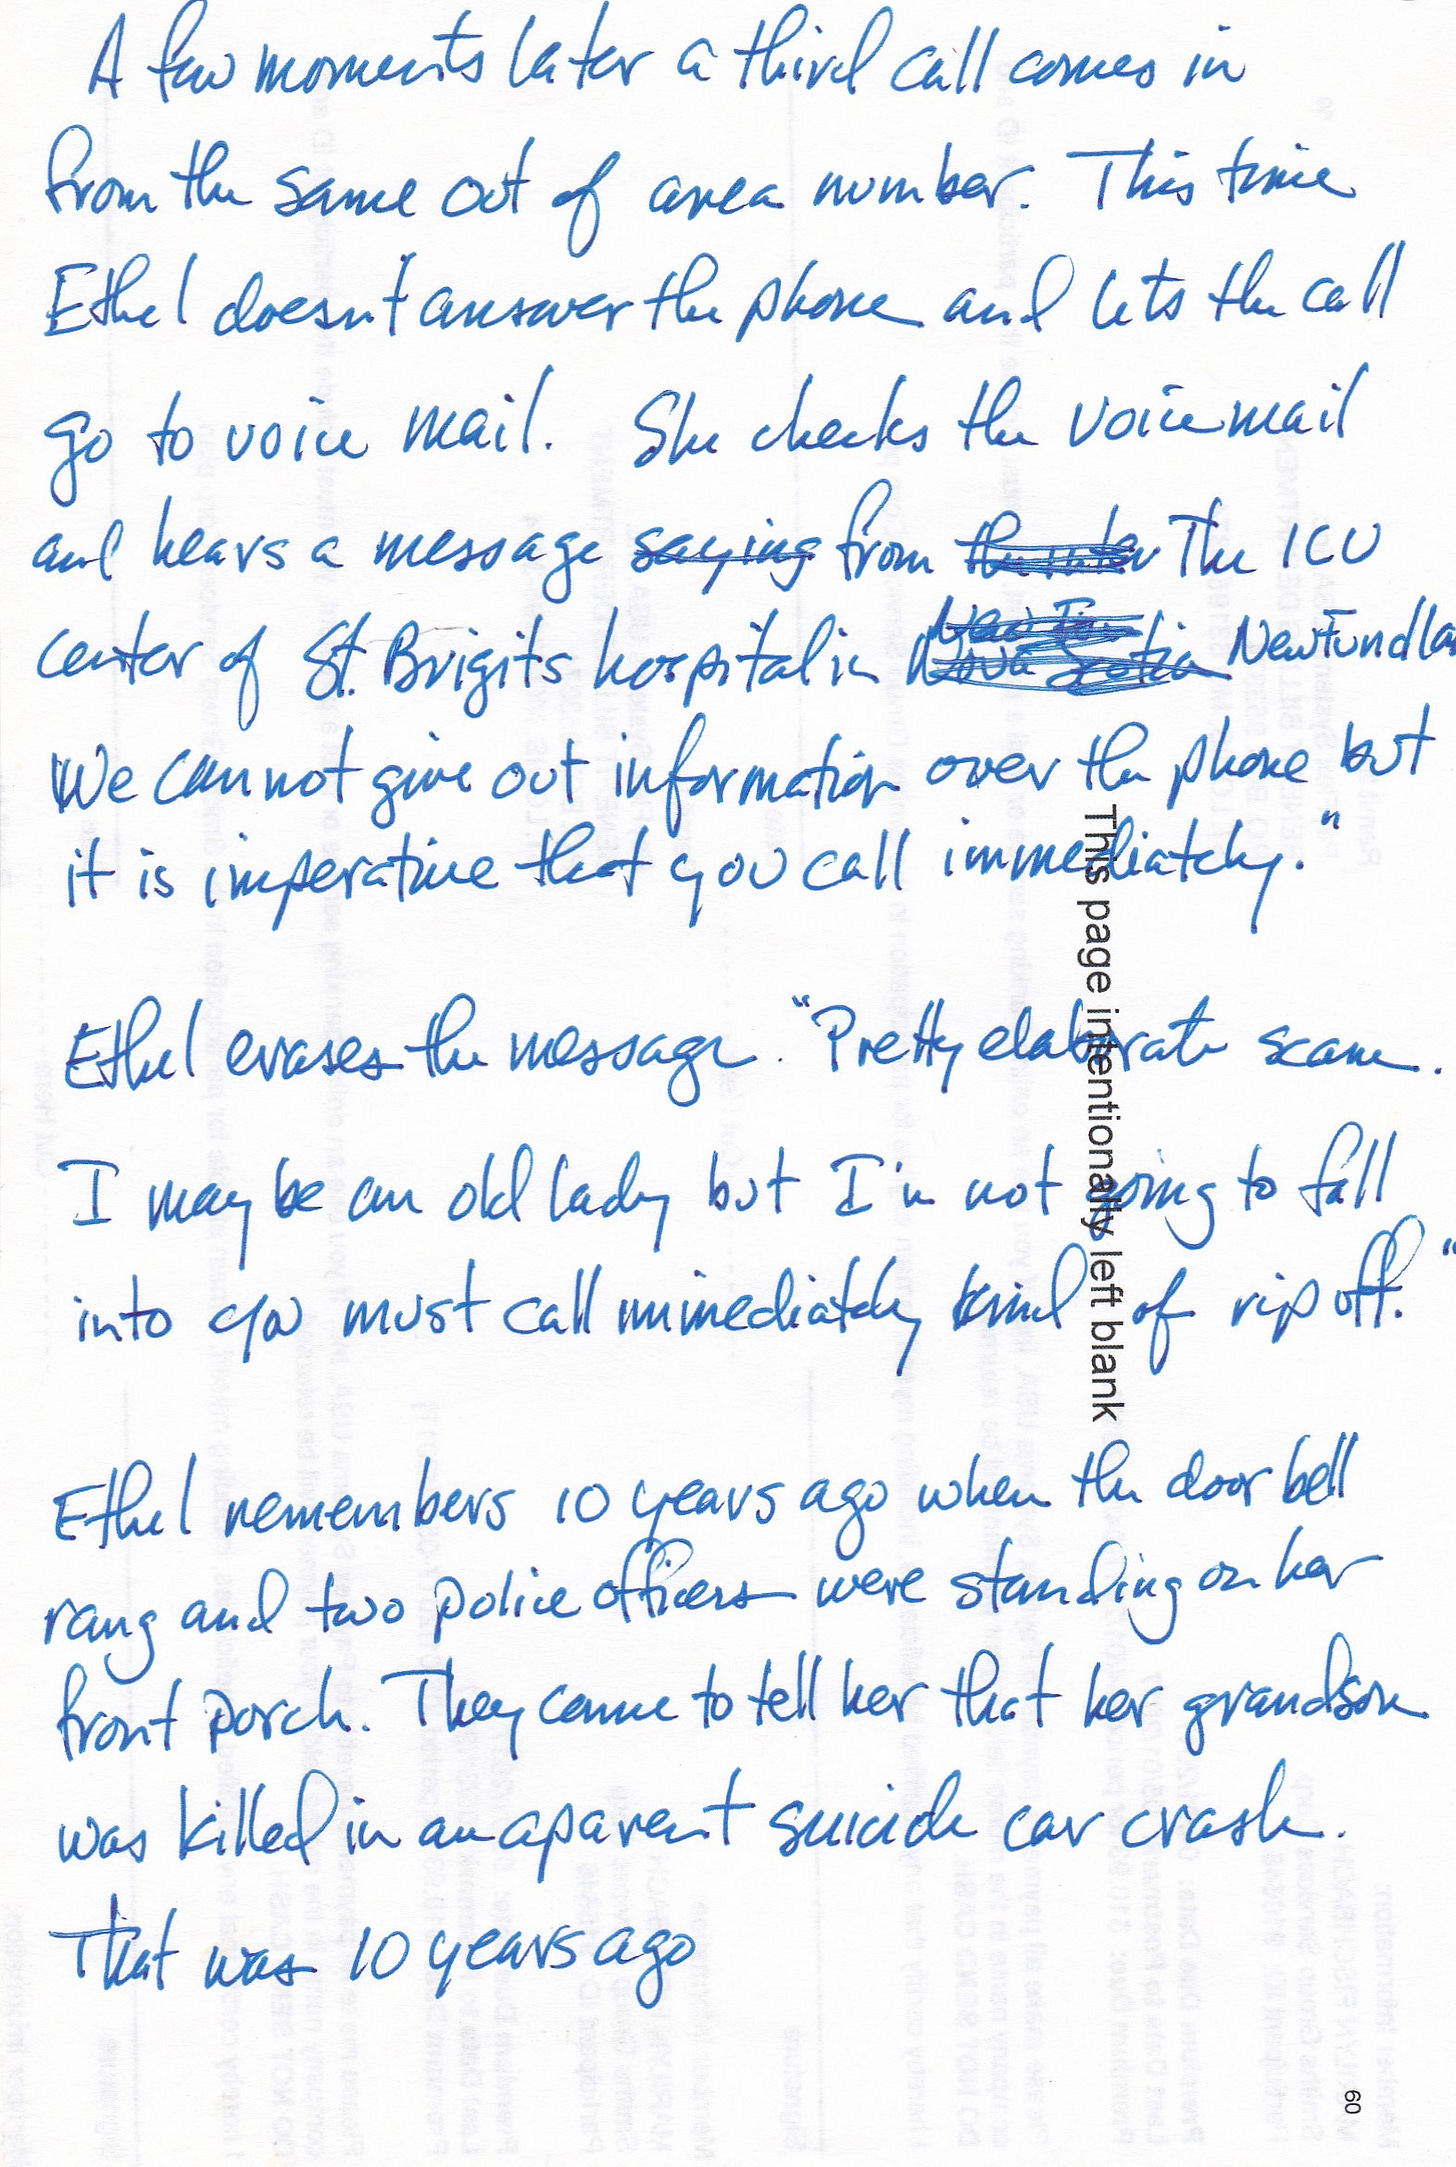 A few moments later a third call comes in
from the same out of area number. This time
Ethel doesn't answer the phone and lets the call
go to voice mail. She checks the voicemail
and hears a message saying from The ICU
center of St. Brigits hospital in Nova Scotia Newfundla
We cannot give out information over the phone but
it is imperative that you call immediately."
Ethel erases the message. "Pretty elaborate scam.
I may be an old lady but I'm not going to fall
into you must call immediately kind of rip off."
Ethel remembers 10 years ago when the door bell
rang and two police officers were standing on her
front porch. They came to tell her that her grandson
was killed in an aparent suicide car crash.
That was 10 years ago
This page intentionally left blank
60